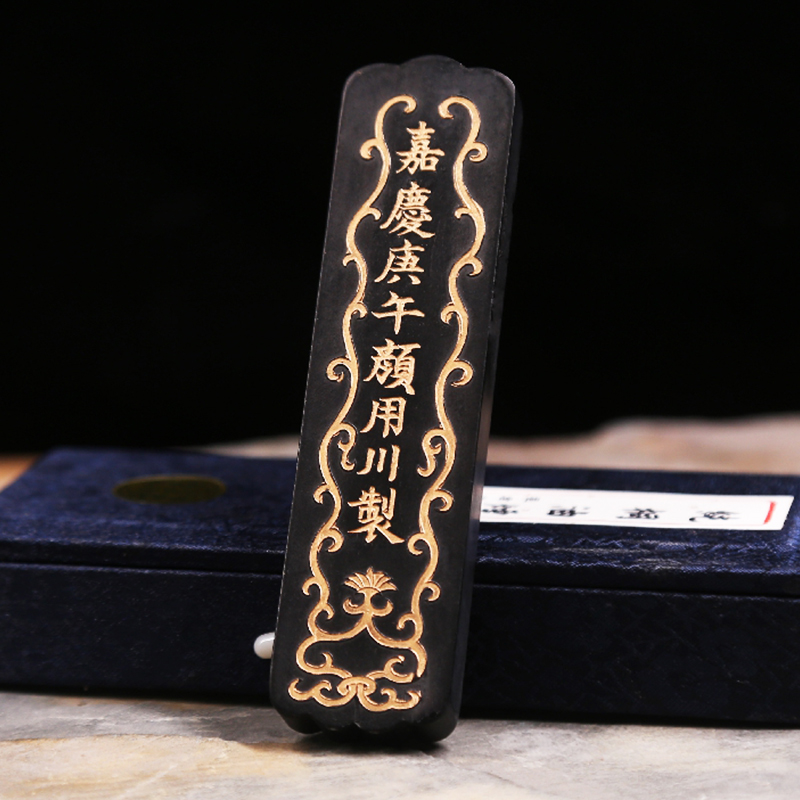 嘉慶庚午顏用川製